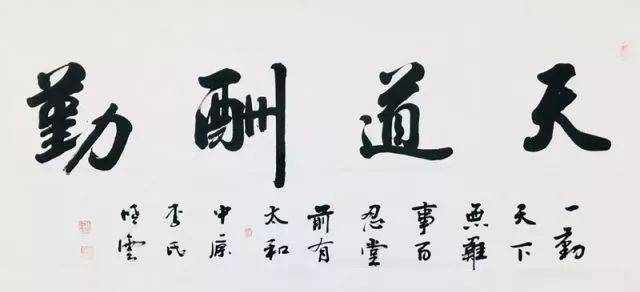 天道酬勤
一勤
天下
無難
事百
忍堂
前有
太和
中原
李氏
雲